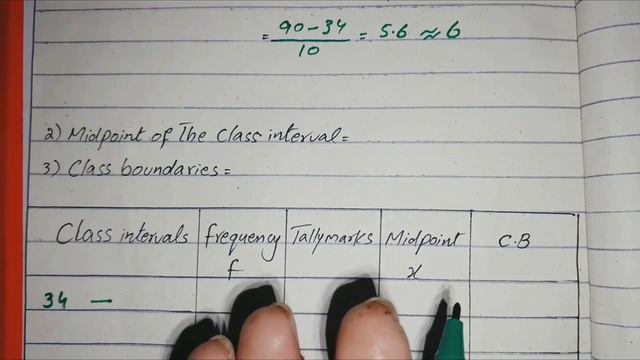 = 90-34 / 10 = 5.6 ≈ 6
2) Midpoint of The Class interval=
3) Class boundaries=
Class intervals frequency Tallymarks Midpoint C.B
f x
34 —